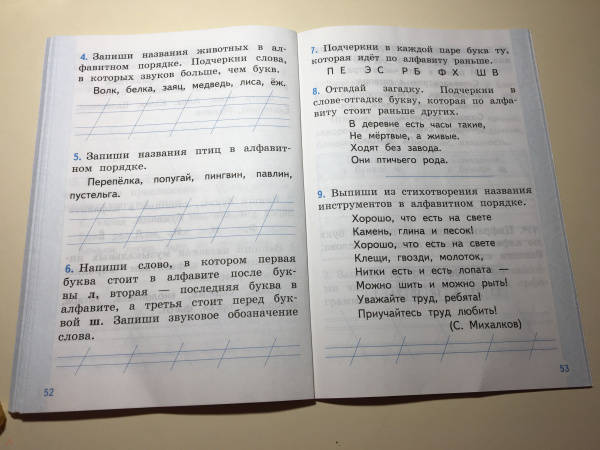 4. Запиши названия животных в ал-
фавитном порядке. Подчеркни слова,
в которых звуков больше, чем букв.
Волк, белка, заяц, медведь, лиса, ёж.
5. Запиши названия птиц в алфавит-
ном порядке.
Перепёлка, попугай, пингвин, павлин,
пустельга.
6. Напиши слово, в котором первая
буква стоит в алфавите после бук-
вы л, вторая — последняя буква в
алфавите, а третья стоит перед бук-
вой ш. Запиши звуковое обозначение
слова.
52
7. Подчеркни в каждой паре букв ту,
которая идёт по алфавиту раньше.
П Е Э С Р Б Ф Х Ш В
8. Отгадай загадку. Подчеркни в
слове-отгадке букву, которая по алфа-
виту стоит раньше других.
В деревне есть часы такие,
Не мёртвые, а живые.
Ходят без завода.
Они птичьего рода.
9. Выпиши из стихотворения названия
инструментов в алфавитном порядке.
Хорошо, что есть на свете
Камень, глина и песок!
Хорошо, что есть на свете
Клещи, гвозди, молоток,
Нитки есть и есть лопата —
Можно шить и можно рыть!
Уважайте труд, ребята!
Приучайтесь труд любить!
(С. Михалков)
53